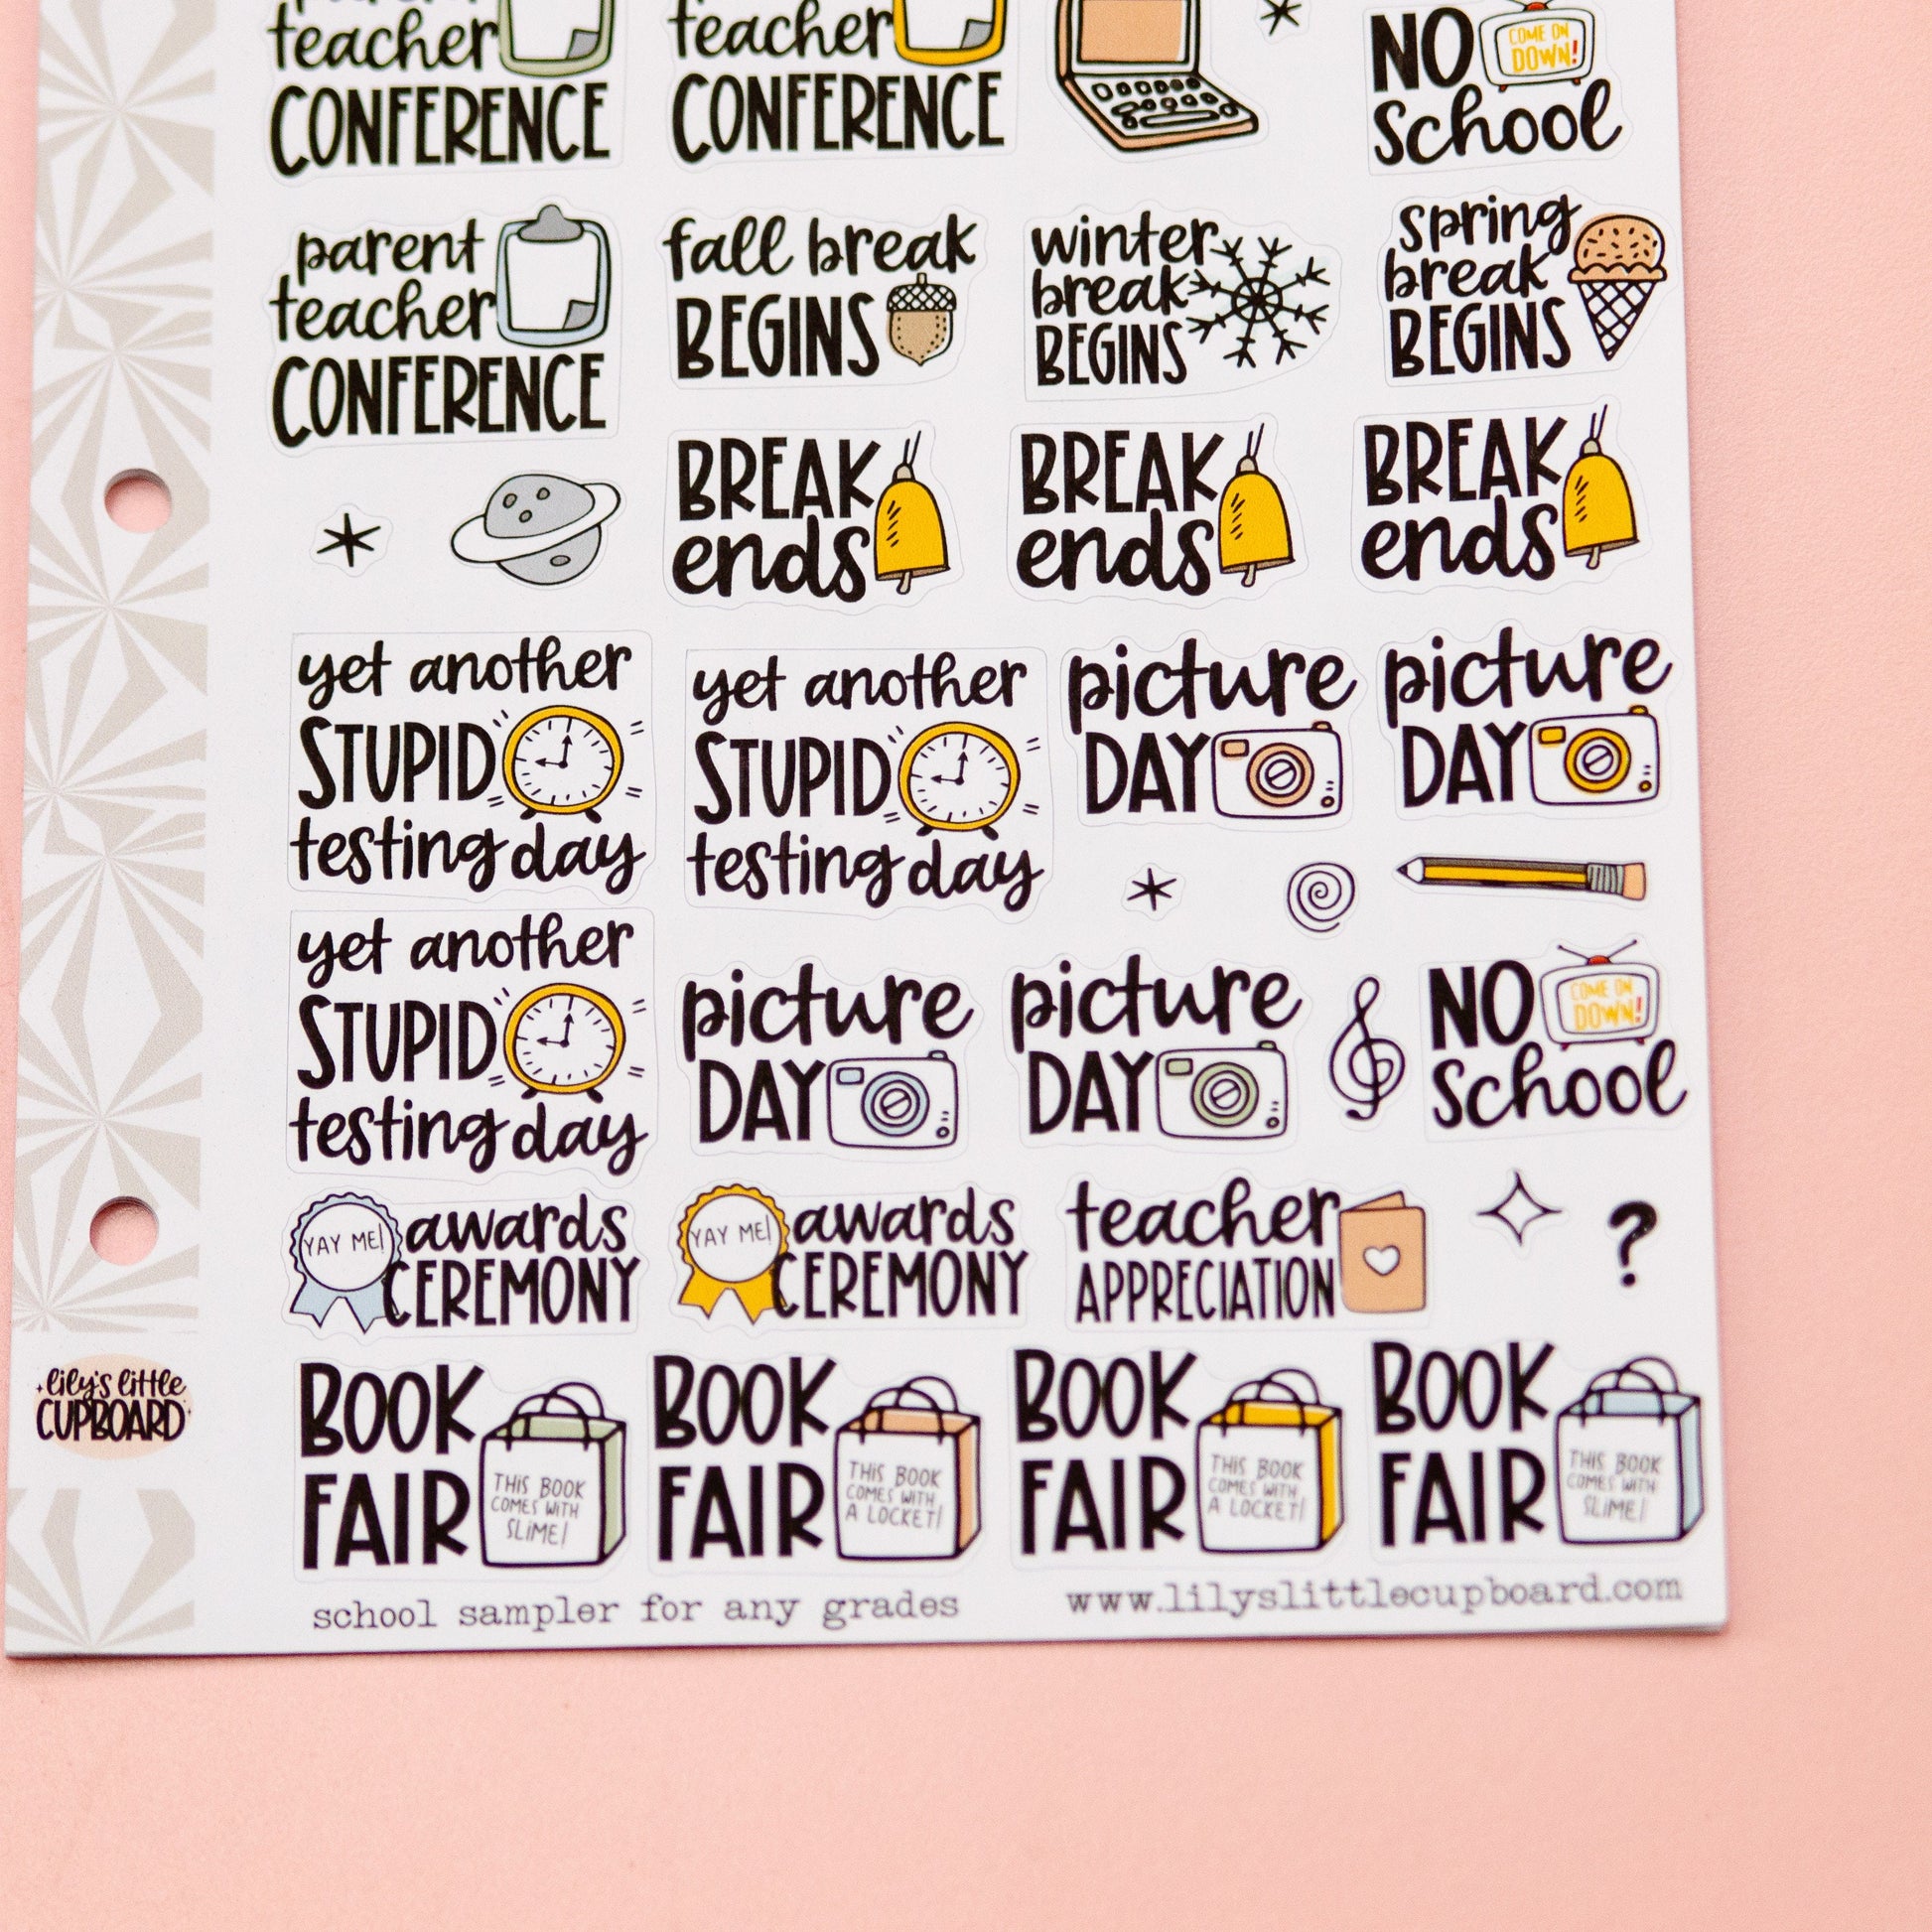 parent
teacher
CONFERENCE
teacher
CONFERENCE
NO
COME ON
DOWN!
School
parent
teacher
CONFERENCE
fall break
BEGINS
winter
break
BEGINS
spring
break
BEGINS
BREAK
ends
BREAK
ends
BREAK
ends
yet another
STUPID
testing day
yet another
STUPID
testing day
picture
DAY
picture
DAY
yet another
STUPID
testing day
picture
DAY
picture
DAY
NO
COME ON
DOWN!
School
YAY ME!
awards
CEREMONY
YAY ME!
awards
CEREMONY
teacher
APPRECIATION
?
lily's little
CUPBOARD
BOOK
FAIR
THIS BOOK
COMES WITH
SLIME!
BOOK
FAIR
THIS BOOK
COMES WITH
A LOCKET!
BOOK
FAIR
THIS BOOK
COMES WITH
A LOCKET!
BOOK
FAIR
THIS BOOK
COMES WITH
SLIME!
school sampler for any grades
www.lilyslittlecupboard.com